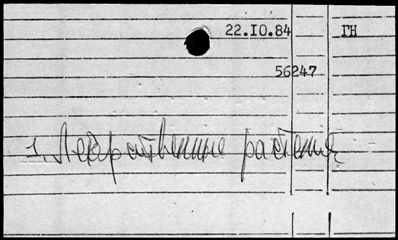 22.IO.84 ГН
56247
1. Лекарственные растения